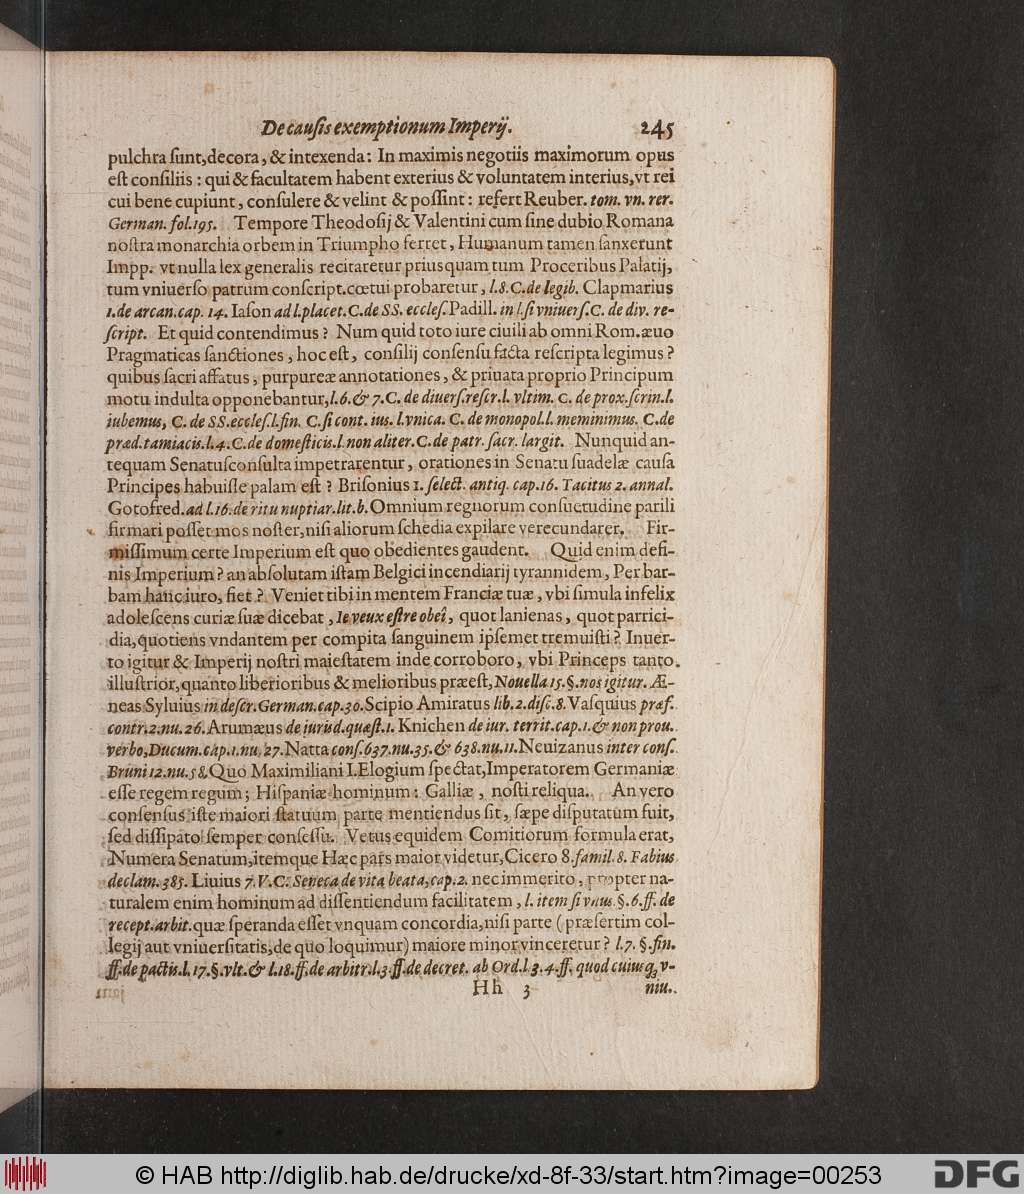 De cauſis exemptionum Imperij. 245
pulchra ſunt, decora, & intexenda: In maximis negotiis maximorum opus
eſt conſiliis: qui & facultatem habent exterius & voluntatem interius, vt rei
cui bene cupiunt, conſulere & velint & poſſint: refert Reuber. tom. vn. rer.
German. fol. 195. Tempore Theodoſij & Valentini cum ſine dubio Romana
noſtra monarchia orbem in Triumpho ferret, Humanum tamen ſanxerunt
Impp. vt nulla lex generalis recitaretur priusquam tum Proceribus Palatij,
tum vniuerſo patrum conſcript. cœtui probaretur, l. 8. C. de legib. Clapmarius
1. de arcan. cap. 14. Iaſon ad l. placet. C. de SS. eccleſ. Padill. in l. ſi vniuerſ. C. de div. re-
ſcript. Et quid contendimus? Num quid toto iure ciuili ab omni Rom. æuo
Pragmaticas ſanctiones, hoc eſt, conſilij conſenſu facta reſcripta legimus?
quibus ſacri affatus, purpureæ annotationes, & priuata proprio Principum
motu indulta opponebantur, l. 6. & 7. C. de diuerſ. reſcr. l. vltim. C. de prox. ſcrin. l.
iubemus, C. de SS. eccleſ. l. fin. C. ſi cont. ius. l. vnica. C. de monopol. l. meminimus. C. de
præd. tamiacis. l. 4. C. de domeſticis. l. non aliter. C. de patr. ſacr. largit. Nunquid an-
tequam Senatuſconſulta impetrarentur, orationes in Senatu ſuadelæ cauſa
Principes habuiſſe palam eſt? Briſonius 1. ſelect. antiq. cap. 16. Tacitus 2. annal.
Gotofred. ad l. 16. de ritu nuptiar. lit. b. Omnium regnorum conſuetudine parili
firmari poſſet mos noſter, niſi aliorum ſchedia expilare verecundarer. Fir-
miſſimum certe Imperium eſt quo obedientes gaudent. Quid enim defi-
nis Imperium? an abſolutam iſtam Belgici incendiarij tyrannidem, Per bar-
bam hanc iuro, fiet? Veniet tibi in mentem Franciæ tuæ, vbi ſimula infelix
adoleſcens curiæ ſuæ dicebat, Ie veux eſtre obeî, quot lanienas, quot parrici-
dia, quotiens vndantem per compita ſanguinem ipſemet tremuiſti? Inuer-
to igitur & Imperij noſtri maieſtatem inde corroboro, vbi Princeps tanto
illuſtrior, quanto liberioribus & melioribus præeſt, Nouella 15. §. nos igitur. Æ-
neas Syluius in deſcr. German. cap. 30. Scipio Amiratus lib. 2. diſc. 8. Vaſquius præf.
contr. 2. nu. 26. Arumæus de iurisd. quæſt. 1. Knichen de iur. territ. cap. 1. & non prou.
verbo, Ducum. cap. 1. nu. 27. Natta conſ. 637. nu. 35. & 638. nu. 11. Neuizanus inter conſ.
Bruni 12. nu. 58. Quo Maximiliani I. Elogium ſpectat, Imperatorem Germaniæ
eſſe regem regum; Hiſpaniæ hominum: Galliæ, noſti reliqua. An vero
conſenſus iſte maiori ſtatuum parte mentiendus ſit, ſæpe diſputatum fuit,
ſed diſſipato ſemper conſeſſu. Vetus equidem Comitiorum formula erat,
Numera Senatum, itemque Hæc pars maior videtur, Cicero 8. famil. 8. Fabius
declam. 385. Liuius 7. V. C. Seneca de vita beata, cap. 2. nec immerito, propter na-
turalem enim hominum ad diſſentiendum facilitatem, l. item ſi vnus. §. 6. ff. de
recept. arbit. quæ ſperanda eſſet vnquam concordia, niſi parte (præſertim col-
legij aut vniuerſitatis, de quo loquimur) maiore minor vinceretur? l. 7. §. fin.
ff. de pactis. l. 17. §. vlt. & l. 18. ff. de arbitr. l. 3. ff. de decret. ab Ord. l 3. 4. ff. quod cuiusq; v-
Hh 3 niu.
© HAB http://diglib.hab.de/drucke/xd-8f-33/start.htm?image=00253 DFG